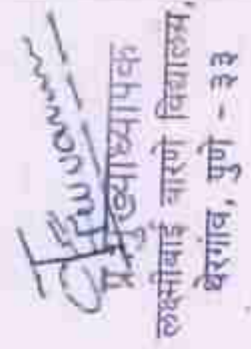 मुख्याध्यापक
लक्ष्मीबाई बारणे विद्यालय,
थेरगांव, पुणे - ३३